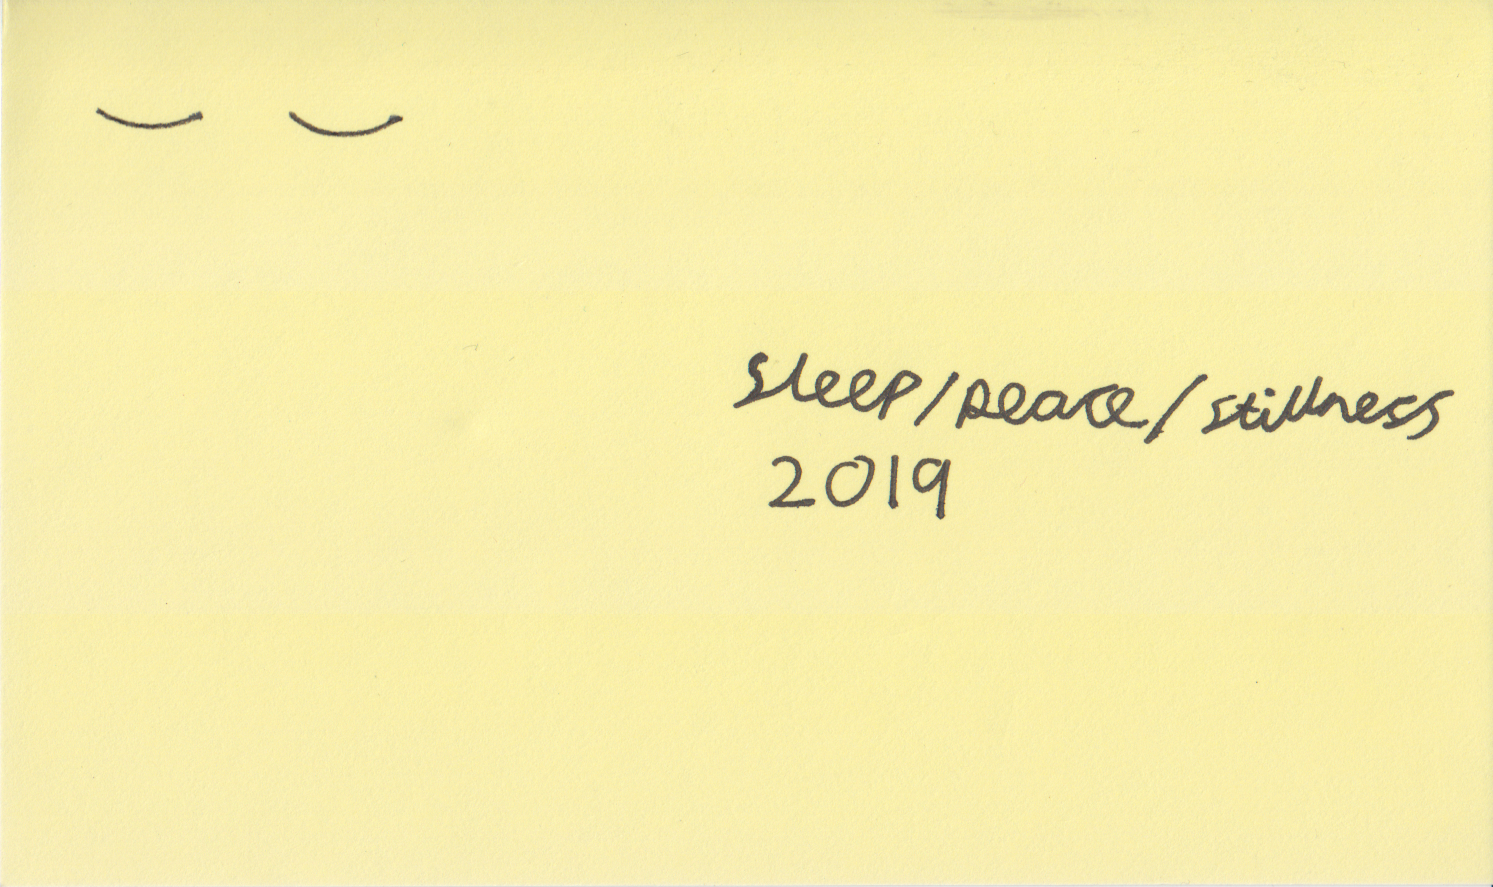 sleep/peace/stillness
2019